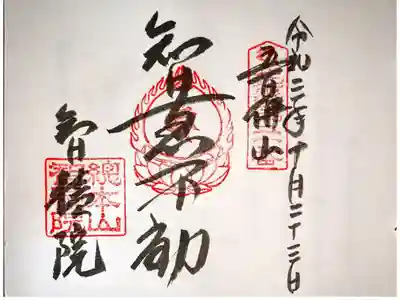 令和三年十月二十三日
五百佛山
智恵不動
智積院
總本山